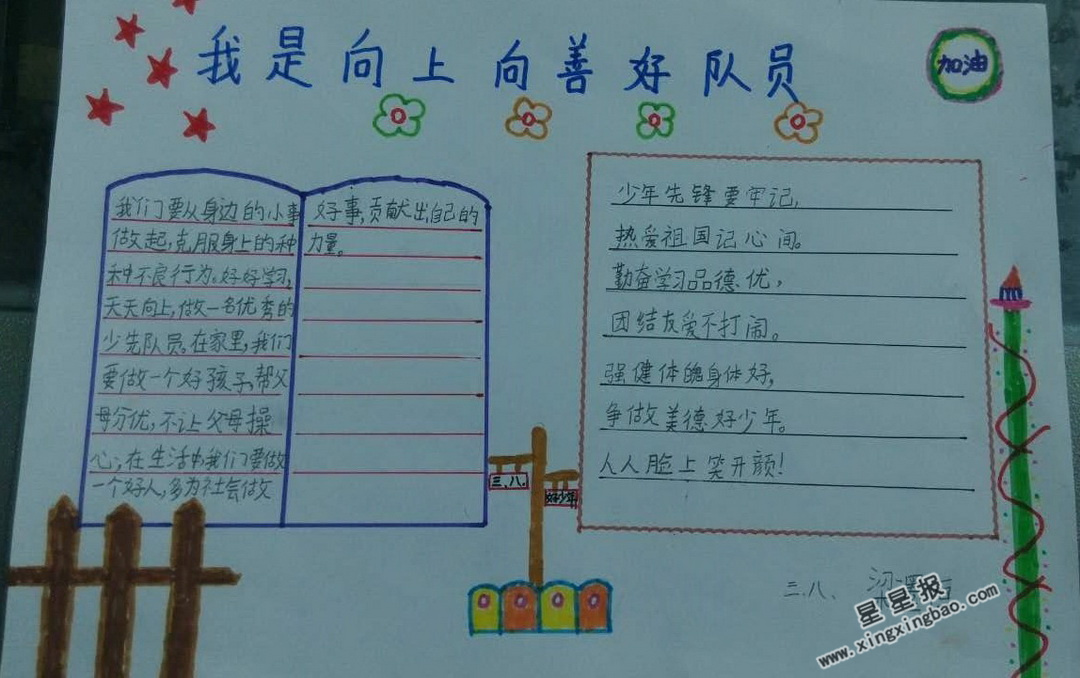 我是向上向善好队员
加油
我们要从身边的小事
做起,克服身上的种
种不良行为。好好学习,
天天向上,做一名优秀的
少先队员。在家里,我们
要做一个好孩子,帮父
母分优,不让父母操
心;在生活中我们要做
一个好人,多为社会做
好事,贡献出自己的
力量。
少年先锋要牢记,
热爱祖国记心间。
勤奋学习品德优,
团结友爱不打闹。
强健体魄身体好,
争做美德好少年。
人人脸上笑开颜!
三、八、
好少年
三、八、
梁
星星报
www.xingxingbao.com